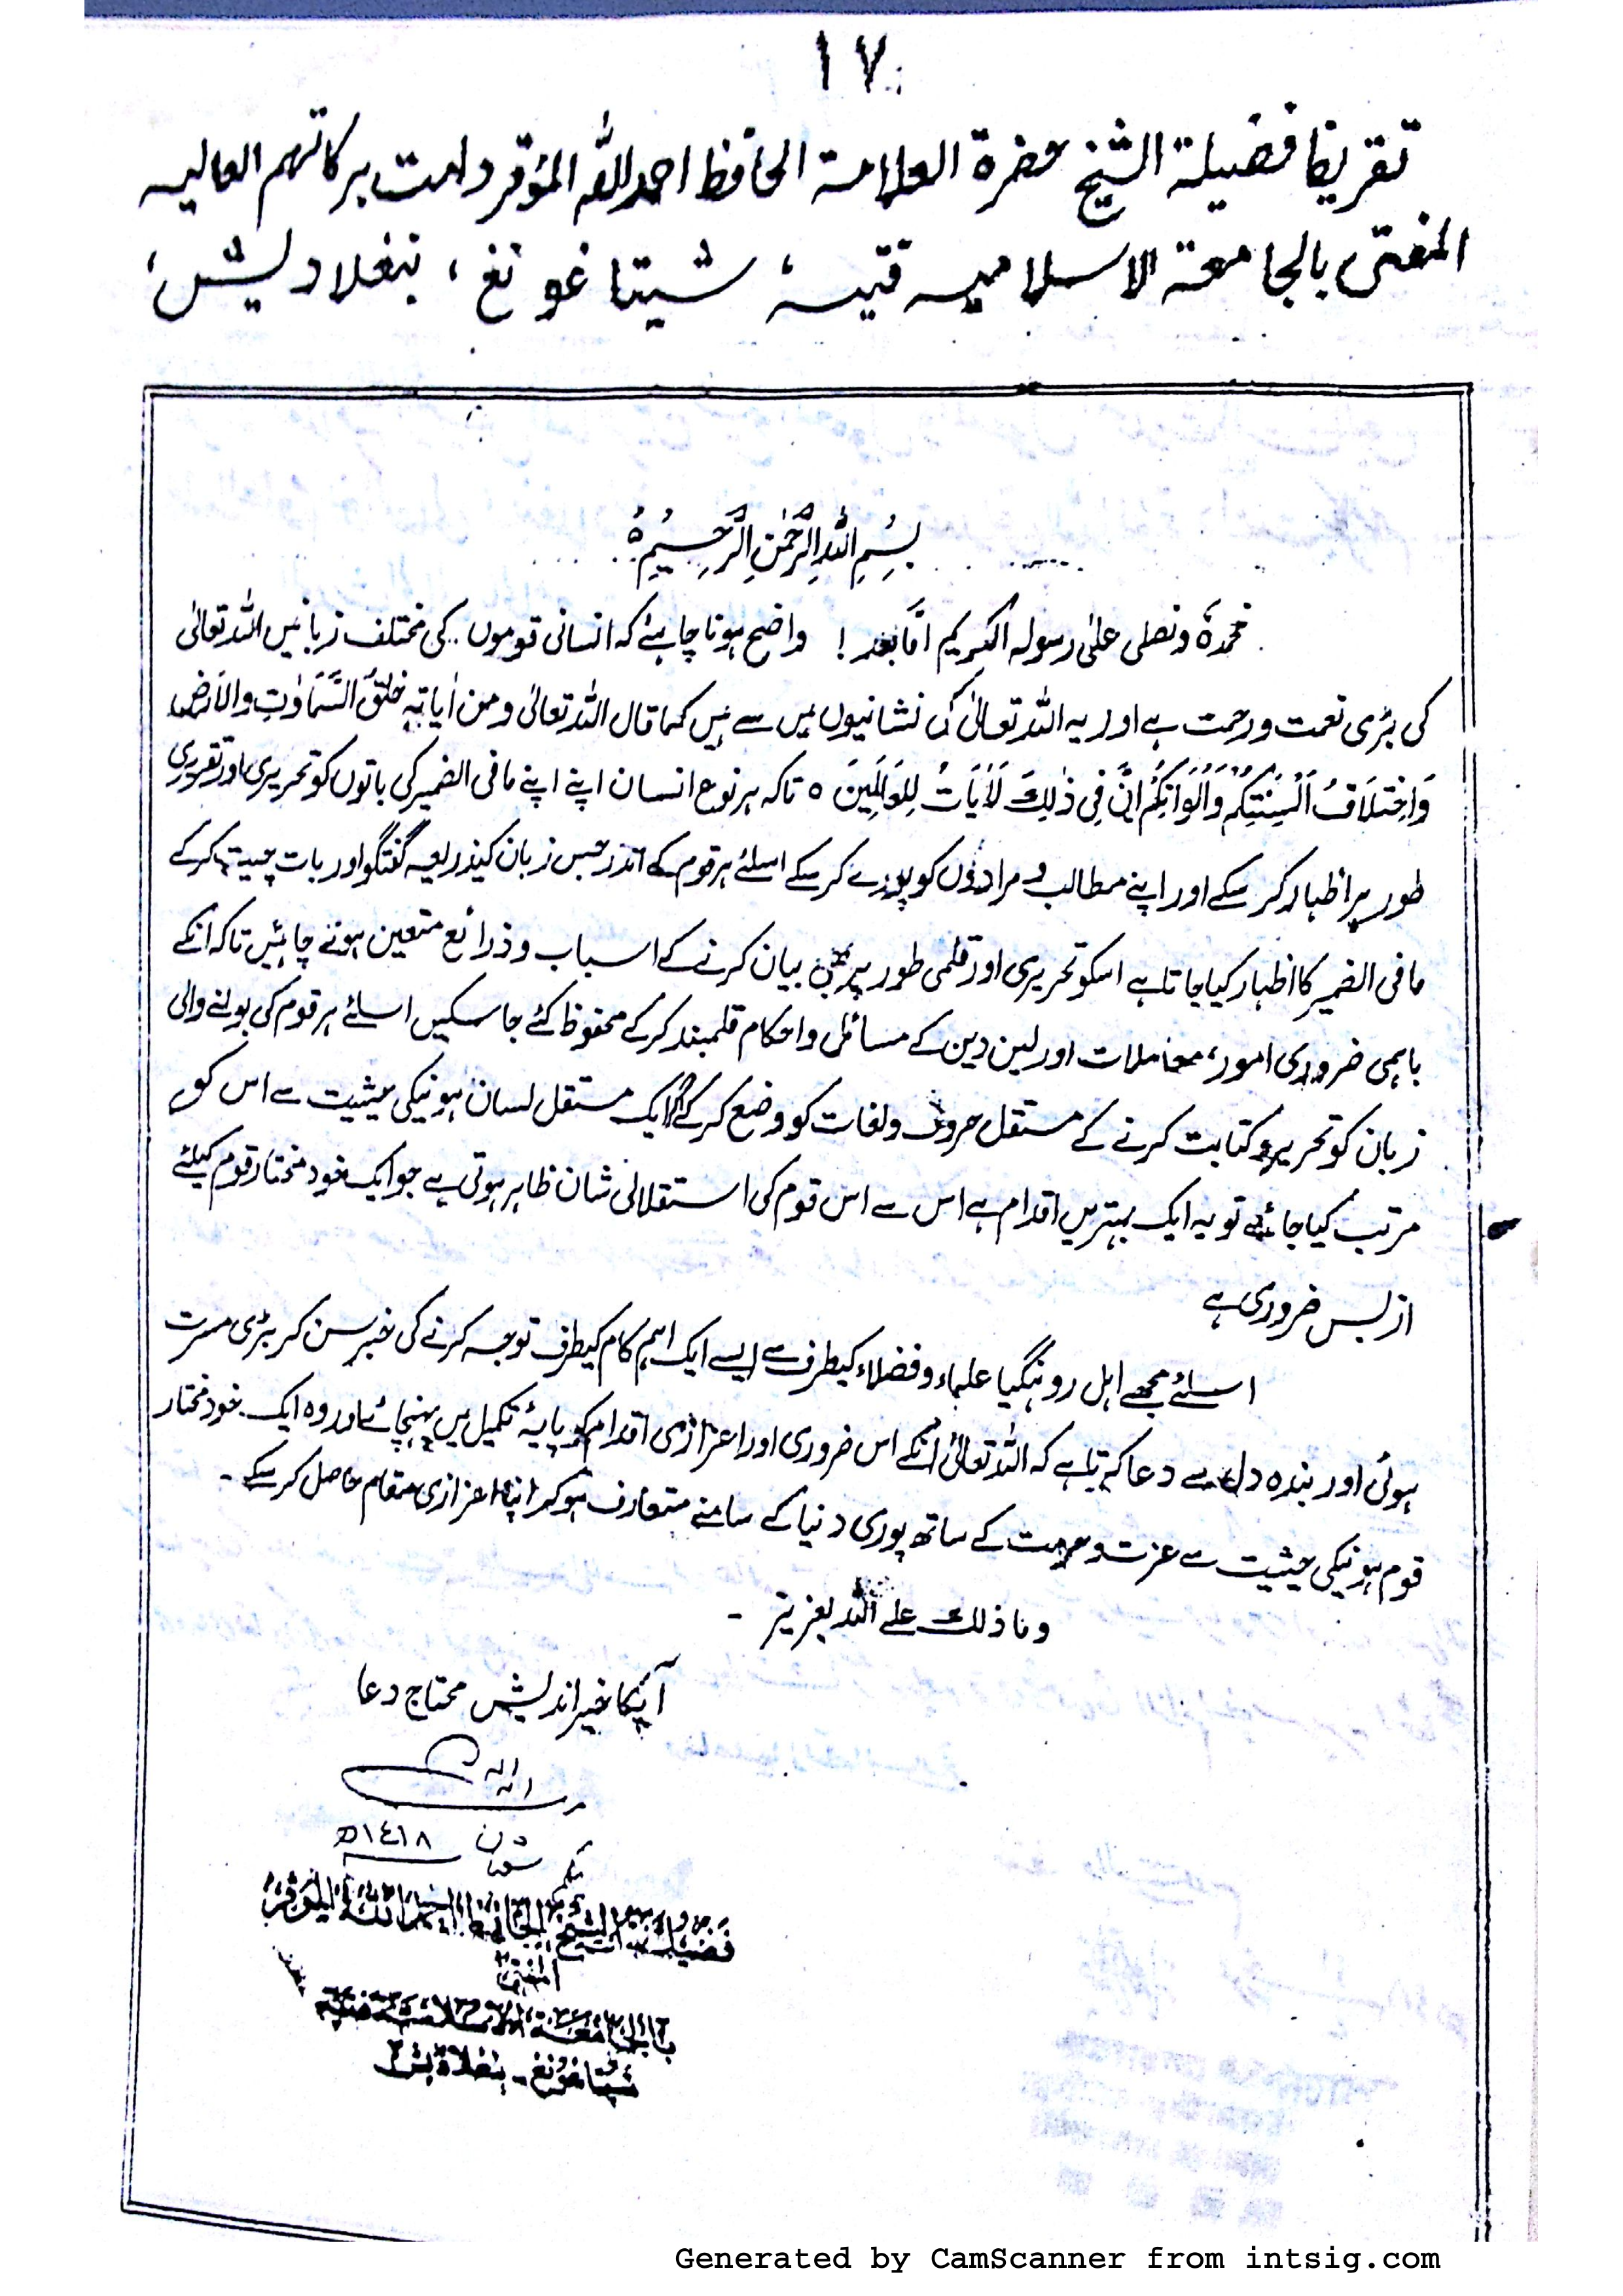 ١٧
تقریظ فضیلة الشیخ حضرة العلامة الحافظ احمد اللہ المؤقر دامت برکاتہم العالیہ
المفتی بالجامعة الاسلامیہ فتیہ، شیتاغونغ، بنغلادیش،
بِسْمِ اللہِ الرَّحْمٰنِ الرَّحِیْمِ ہ
نحمدہٗ ونصلی علیٰ رسولہ الکریم امّا بعد! واضح ہونا چاہئے کہ انسانی قوموں کی مختلف زبانیں اللہ تعالیٰ
کی بڑی نعمت ورحمت ہے اور یہ اللہ تعالیٰ کی نشانیوں میں سے ہیں کما قال اللہ تعالیٰ ومن اٰیاتہٖ خلقُ السَّمَاوٰتِ والاَرضِ
وَاخِتلَافُ اَلسِنَتِکُم وَاَلوَانِکُم اِنَّ فِی ذٰلِکَ لَاٰیَاتٍ لِلعَالَمِینَ ہ تاکہ ہر نوع انسان اپنے اپنے مافی الضمیر کی باتوں کو تحریری اور تقریری
طور پر اظہار کر سکے اور اپنے مطالب و مرادوں کو پورے کر سکے اسلئے ہر قوم کے اندر جس زبان کیذریعہ گفتگو اور بات چیت کرکے
مافی الضمیر کا اظہار کیا جاتا ہے اسکو تحریری اور قلمی طور پر بیان کرنے کے اسباب وذرائع متعین ہونے چاہئیں تاکہ انکے
باہمی ضروری امور، معاملات اور لین دین کے مسائل واحکام قلمبند کرکے محفوظ کئے جاسکیں اسلئے ہر قوم کی بولنے والی
زبان کو تحریر وکتابت کرنے کے مستقل حروف ولغات کو وضع کرکے ایک مستقل لسان ہونیکی حیثیت سے اس کو
مرتب کیا جائے تو یہ ایک بہترین اقدام ہے اس سے اس قوم کی استقلالی شان ظاہر ہوتی ہے جو ایک خود مختار قوم کیلئے
ازبس ضروری ہے
اسلئے مجھے اہل روہنگیا علماء وفضلاء کیطرف سے ایسے ایک اہم کام کیطرف توجہ کرنے کی خبر سن کر بڑی مسرت
ہوئی اور بندہ دل سے دعا کرتا ہے کہ اللہ تعالیٰ انکے اس ضروری اور اعزازی اقدام کو پایۂ تکمیل میں پہنچائے اور وہ ایک خود مختار
قوم ہونیکی حیثیت سے عزت و کے ساتھ پوری دنیا کے سامنے متعارف ہوکر اپنا اعزازی مقام حاصل کر سکے ۔
وما ذلک علے اللہ بعزیز ۔
آپکا خیر اندیش محتاج دعا
١٤١٨ھ
فضیلة الشیخ الحافظ احمد اللہ المؤقر
المفتی
بالجامعة الاسلامیة فتیہ
شیتاغونغ۔ بنغلادیش
Generated by CamScanner from intsig.com